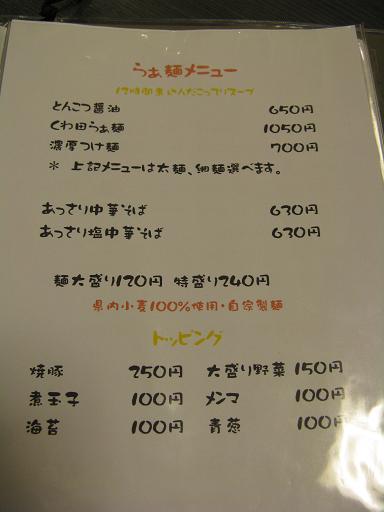 らぁ麺メニュー
12時間煮込んだこってりスープ
とんこつ醤油 650円
くわ田らぁ麺 1050円
濃厚つけ麺 700円
* 上記メニューは太麺、細麺選べます。
あっさり中華そば 630円
あっさり塩中華そば 630円
麺大盛り120円 特盛り240円
県内小麦100%使用・自家製麺
トッピング
焼豚 250円 大盛り野菜 150円
煮玉子 100円 メンマ 100円
海苔 100円 青葱 100円